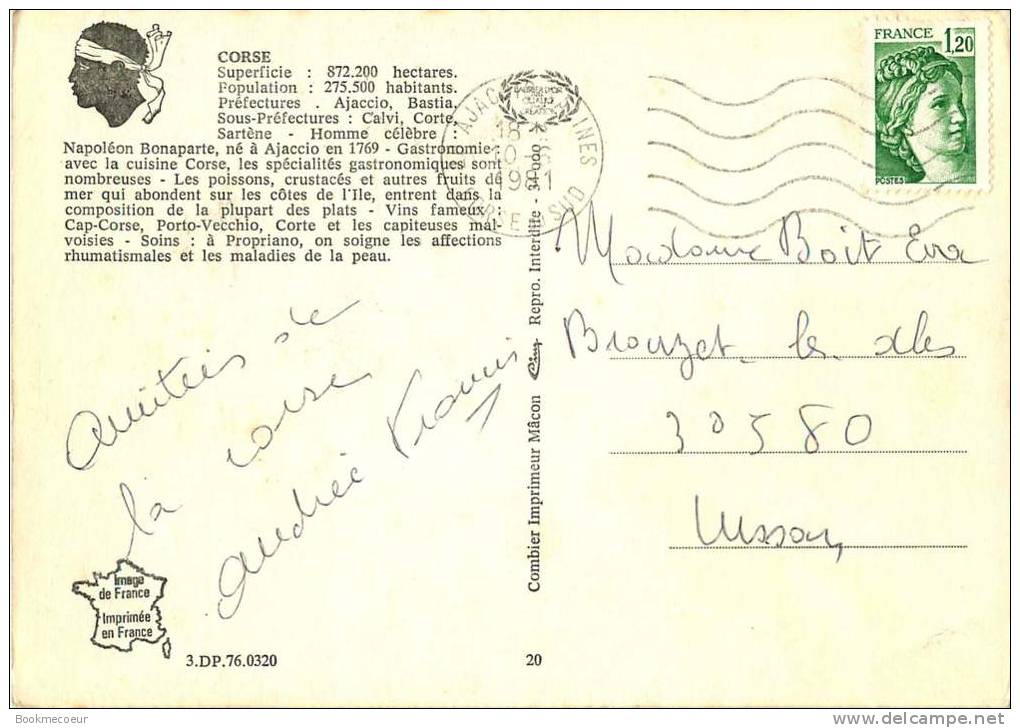 CORSE
Superficie : 872.200 hectares.
Population : 275.500 habitants.
Préfectures . Ajaccio, Bastia.
Sous-Préfectures : Calvi, Corte,
Sartène - Homme célèbre :
Napoléon Bonaparte, né à Ajaccio en 1769 - Gastronomie :
avec la cuisine Corse, les spécialités gastronomiques sont
nombreuses - Les poissons, crustacés et autres fruits de
mer qui abondent sur les côtes de l'Ile, entrent dans la
composition de la plupart des plats - Vins fameux :
Cap-Corse, Porto-Vecchio, Corte et les capiteuses mal-
voisies - Soins : à Propriano, on soigne les affections
rhumatismales et les maladies de la peau.
Amitiés de
la corse
Andrée Francis
Image
de France
Imprimée
en France
3.DP.76.0320
20
Combier Imprimeur Mâcon Cim Repro. Interdite -
FRANCE
1,20
POSTES
18
10
CORSE SUD
Madame Boit Eva
Brouzet les Ales
30580
Lussan
Bookmecoeur
www.delcampe.net